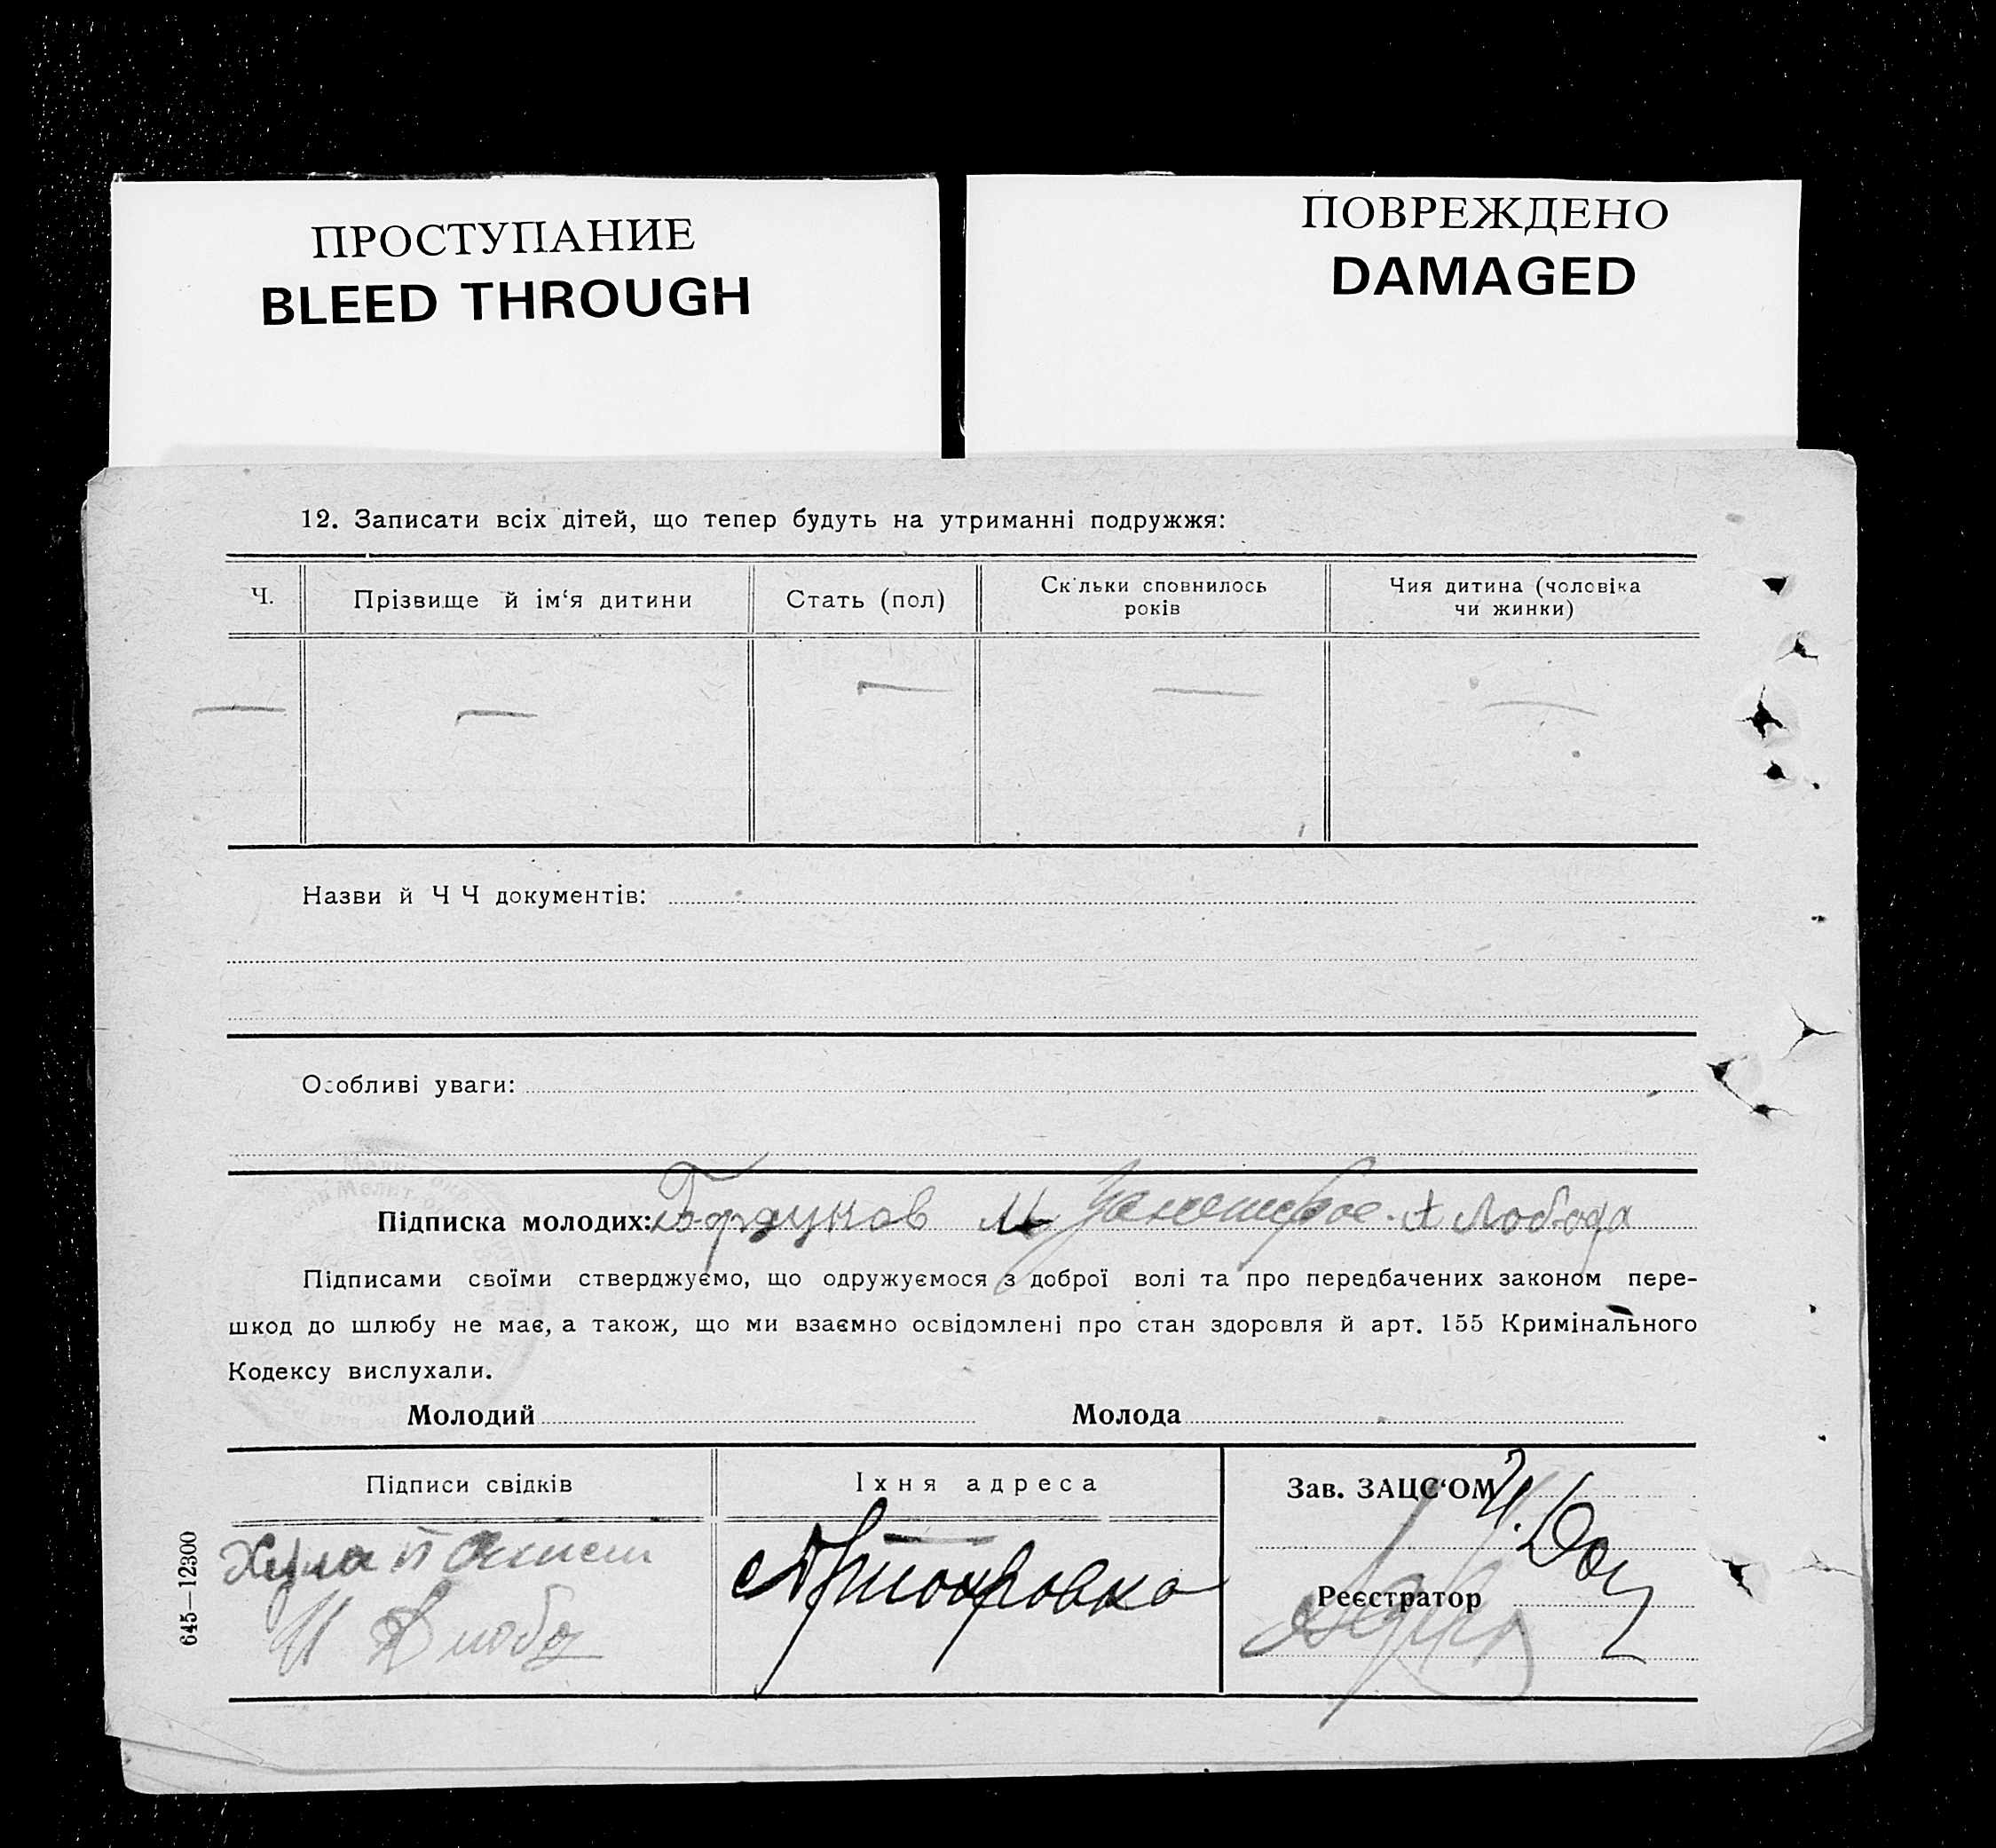 ПРОСТУПАНИЕ
BLEED THROUGH
ПОВРЕЖДЕНО
DAMAGED
12. Записати всіх дітей, що тепер будуть на утриманні подружжя:
Ч.
Прізвище й ім‘я дитини
Стать (пол)
Скільки сповнилось
років
Чия дитина (чоловіка
чи жинки)
— — — — —
Назви й Ч Ч документів:
Особливі уваги:
Підписка молодих: А Лобода
Підписами своїми стверджуємо, що одружуємося з доброї волі та про передбачених законом пере-
шкод до шлюбу не має, а також, що ми взаємно освідомлені про стан здоровля й арт. 155 Кримінального
Кодексу вислухали.
Молодий Молода
Підписи свідків
Їхня адреса
Зав. ЗАЦС‘ОМ
Реєстратор
645—12300